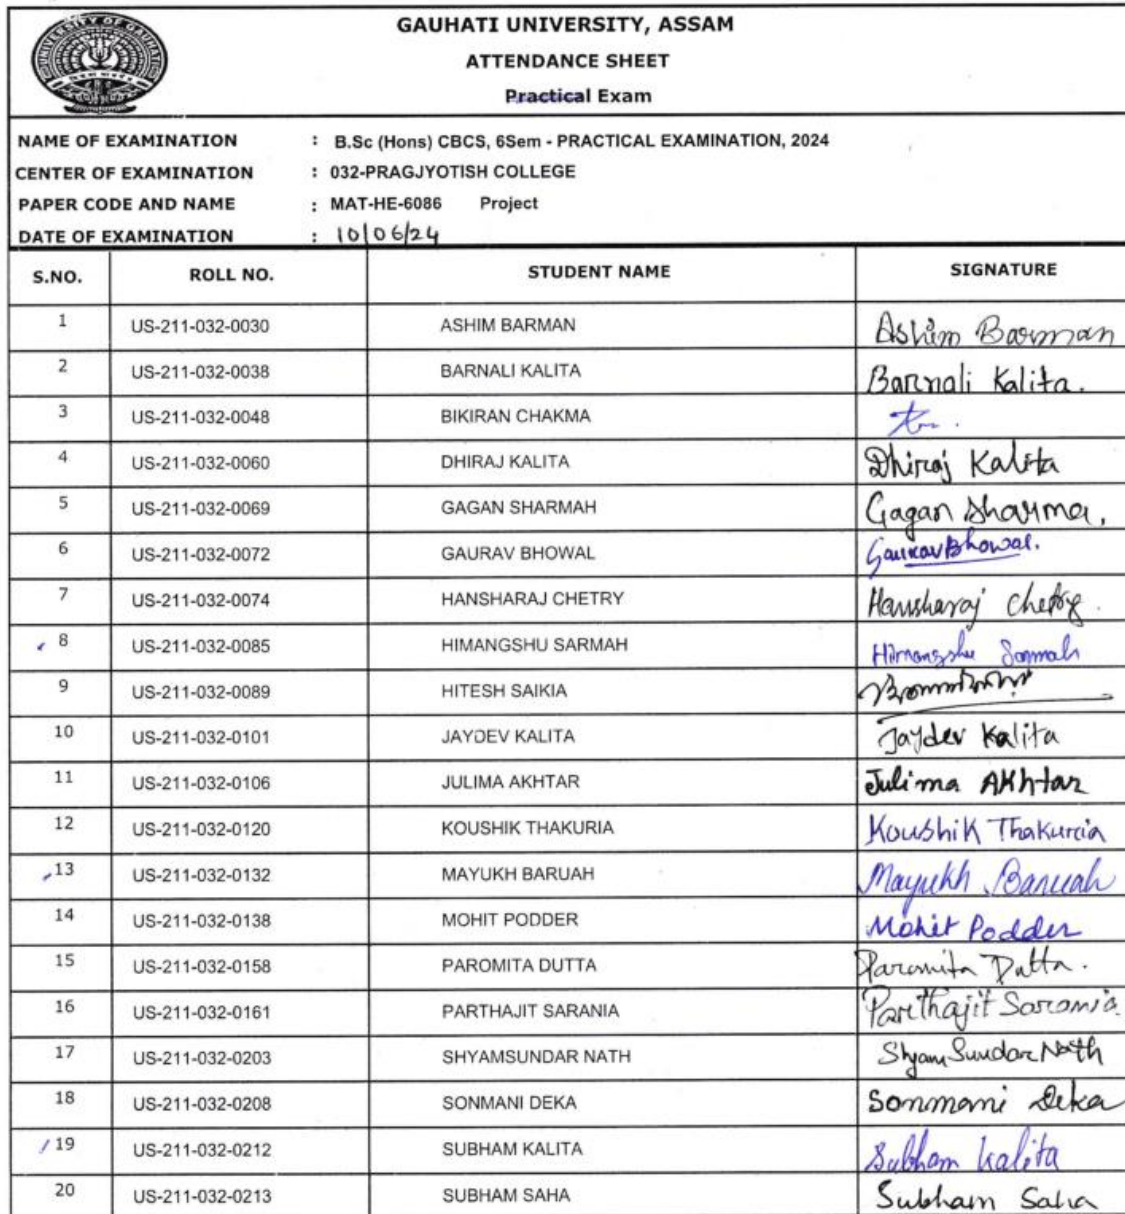 GAUHATI UNIVERSITY, ASSAM
ATTENDANCE SHEET
Practical Exam
NAME OF EXAMINATION : B.Sc (Hons) CBCS, 6Sem - PRACTICAL EXAMINATION, 2024
CENTER OF EXAMINATION : 032-PRAGJYOTISH COLLEGE
PAPER CODE AND NAME : MAT-HE-6086 Project
DATE OF EXAMINATION : 10/06/24
S.NO. ROLL NO. STUDENT NAME SIGNATURE
1 US-211-032-0030 ASHIM BARMAN Ashim Barman
2 US-211-032-0038 BARNALI KALITA Barnali Kalita.
3 US-211-032-0048 BIKIRAN CHAKMA
4 US-211-032-0060 DHIRAJ KALITA Dhiraj Kalita
5 US-211-032-0069 GAGAN SHARMAH Gagan Sharma.
6 US-211-032-0072 GAURAV BHOWAL Gaurav Bhowal.
7 US-211-032-0074 HANSHARAJ CHETRY Hansharaj Chetry.
8 US-211-032-0085 HIMANGSHU SARMAH Himangshu Sarmah
9 US-211-032-0089 HITESH SAIKIA
10 US-211-032-0101 JAYDEV KALITA Jaydev Kalita
11 US-211-032-0106 JULIMA AKHTAR Julima AKhtar
12 US-211-032-0120 KOUSHIK THAKURIA Koushik Thakuria
13 US-211-032-0132 MAYUKH BARUAH Mayukh Baruah
14 US-211-032-0138 MOHIT PODDER Mohit Podder
15 US-211-032-0158 PAROMITA DUTTA Paromita Dutta.
16 US-211-032-0161 PARTHAJIT SARANIA Parthajit Sarania
17 US-211-032-0203 SHYAMSUNDAR NATH Shyam Sundar Nath
18 US-211-032-0208 SONMANI DEKA Sonmani Deka
19 US-211-032-0212 SUBHAM KALITA Subham Kalita
20 US-211-032-0213 SUBHAM SAHA Subham Saha